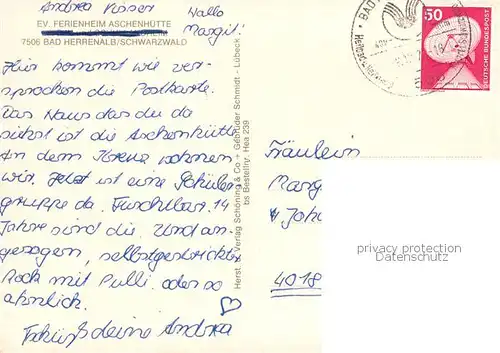 Andrea
EV. FERIENHEIM ASCHENHÜTTE
Hallo
Margit!
7506 BAD HERRENALB/SCHWARZWALD
Hier kommt wie ver-
sprochen die Postkarte.
Das Haus das du da
siehst ist die Aschenhütte
An dem Kreuz wohnen
wir. Jetzt ist eine Schüler
gruppe da. Furchtbar. 14
Jahre sind die. Und an-
gezogen, selbstgestrickter
Rock mit Pulli oder so
ähnlich.
Tschüß deine Andrea
Herst. u. Verlag Schöning & Co + Gebrüder Schmidt - Lübeck
bs Bestellnr. Hea 239
BAD
50
DEUTSCHE BUNDESPOST
Fräulein
Marg
Joh
4018
privacy protection
Datenschutz